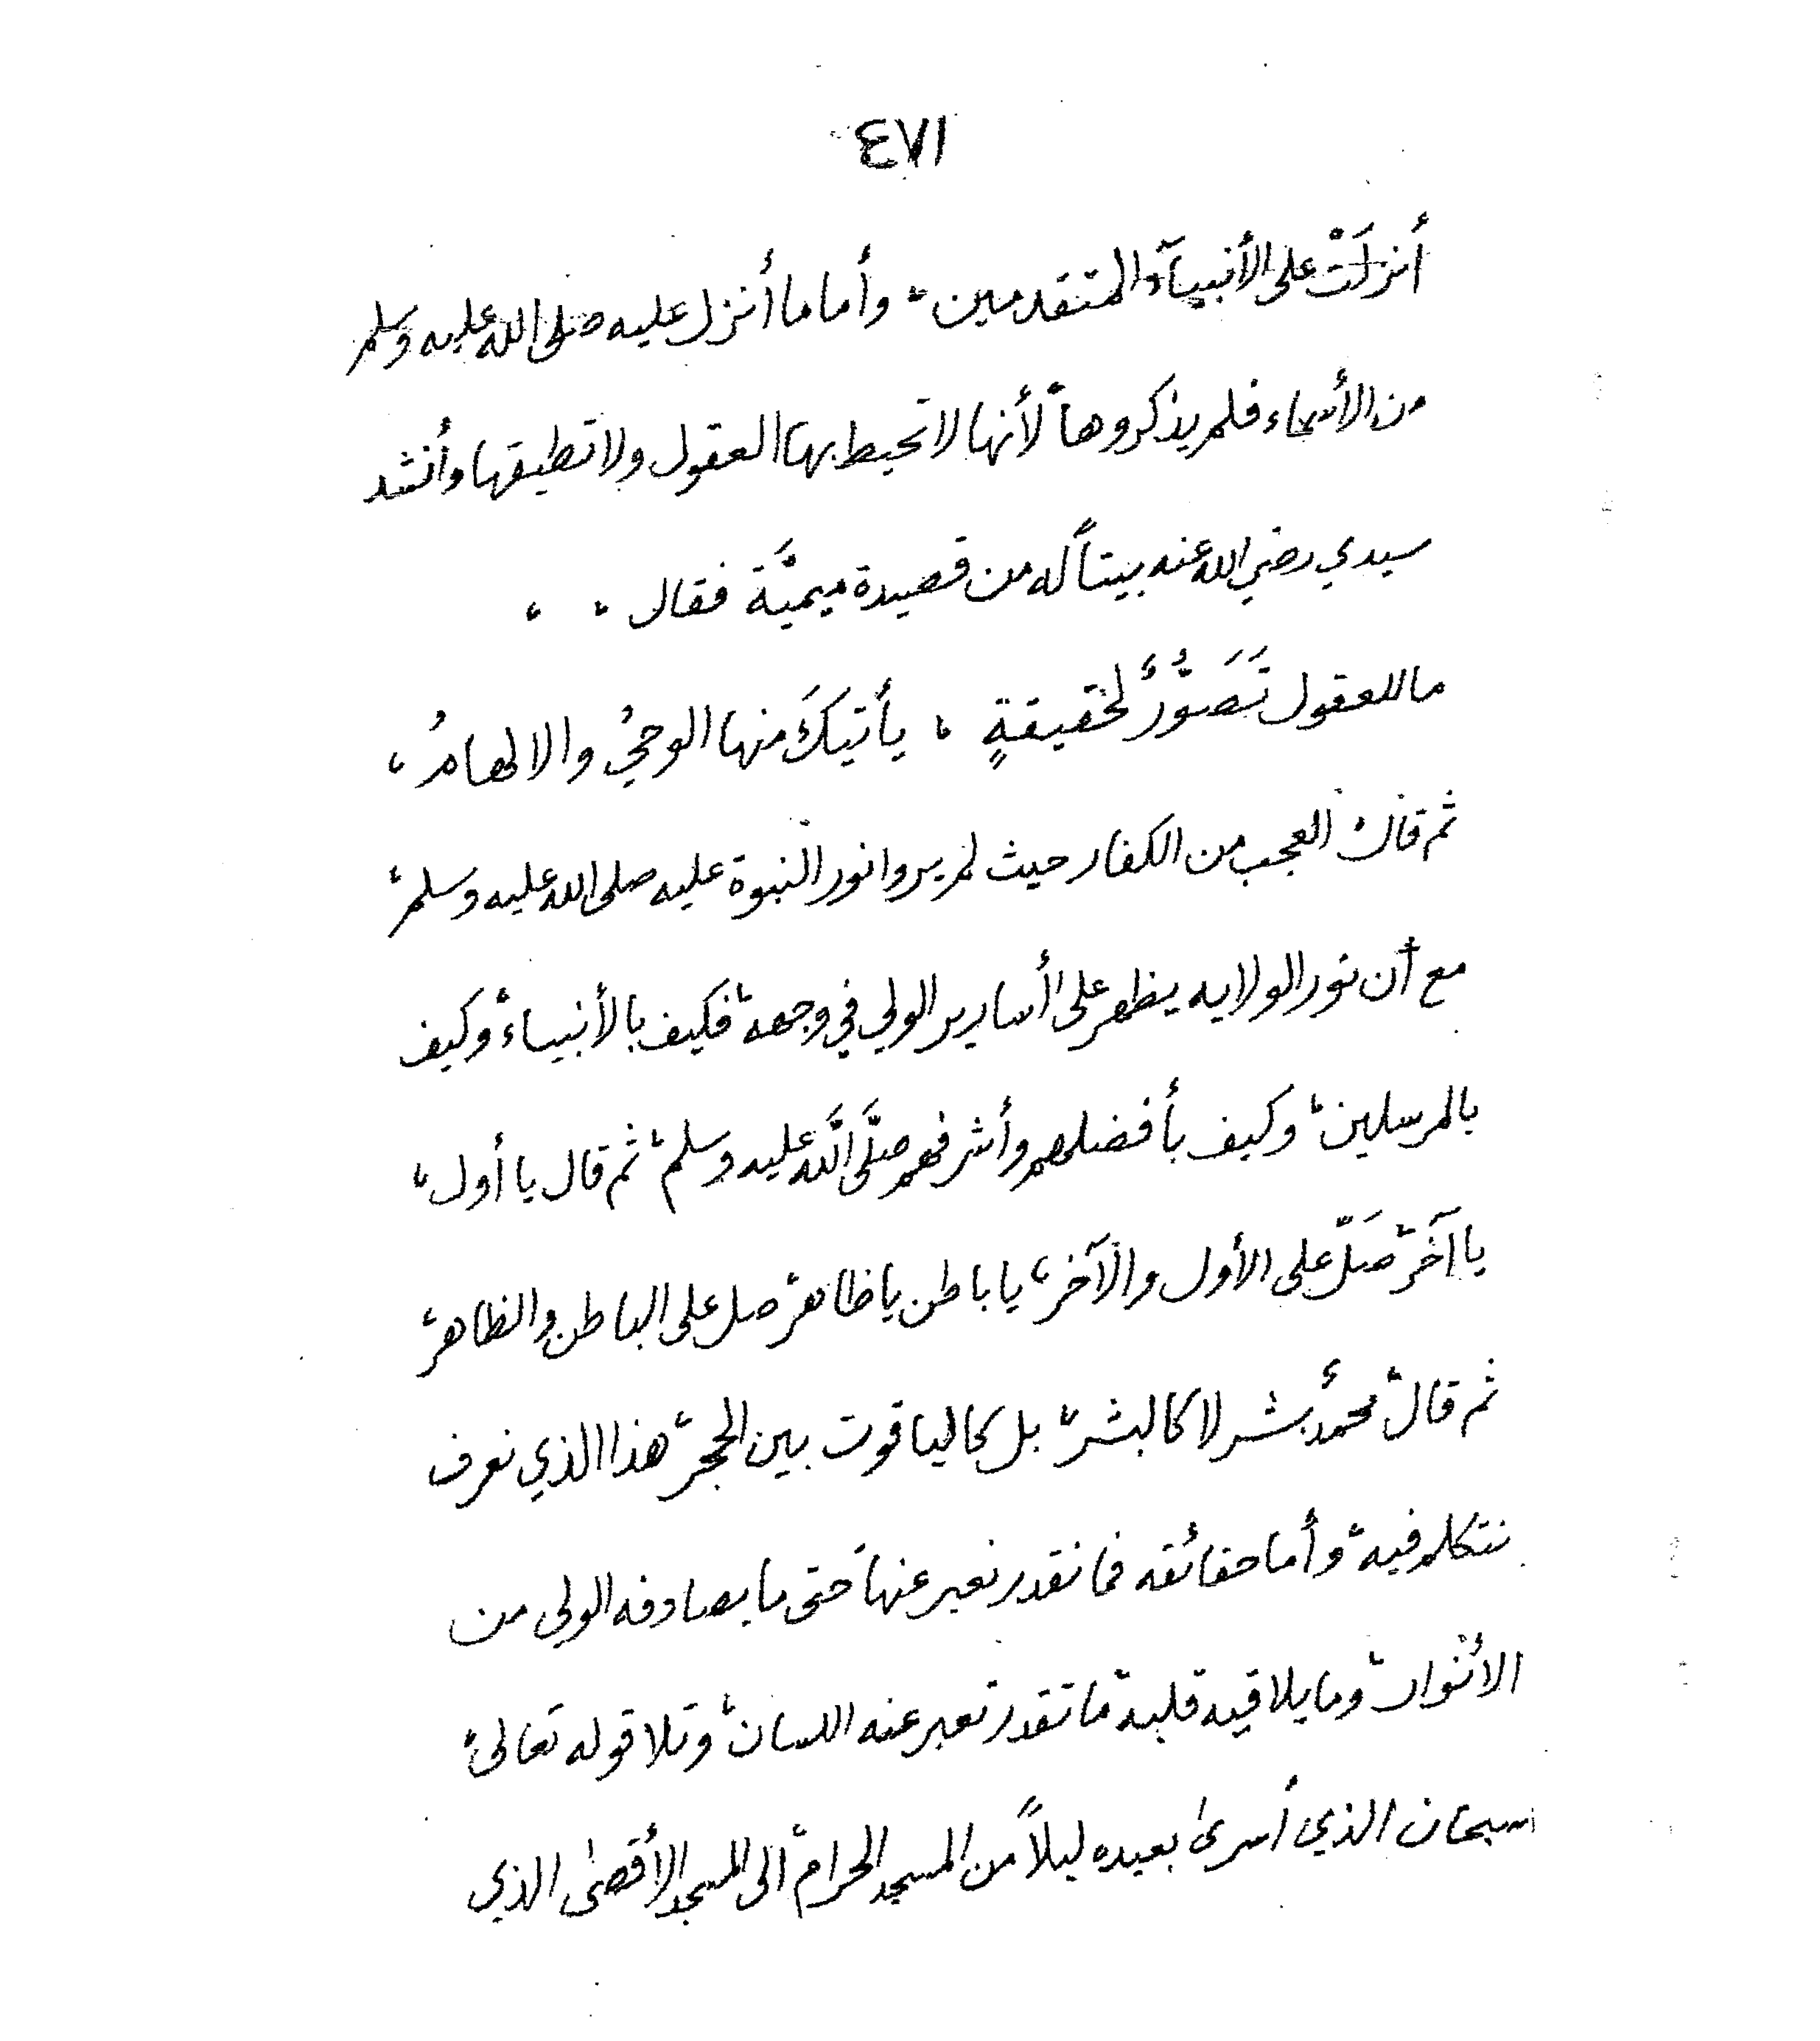 ٤٧١
أنزلَتْ على الأنبيآء المتقدمين، وأما ما أنزل عليه صلى الله عليه وسلم
من الأسماء فلم يذكروها، لأنها لا تحيط بها العقول ولا تطيقها وأنشد
سيدي رضي الله عنه بيتاً له من قصيدة ميميَّة فقال ، ،
ما للعقول تَصَوُّرٌ لحقيقةٍ ، يأتيكَ منها الوحيُ والالهامُ ،
ثم قال، العجب من الكفار حيث لم يروا نور النبوة عليه صلى الله عليه وسلم،
مع أن نور الولايه يظهر على أسارير الولي في وجهه، فكيف بالأنبياء، وكيف
بالمرسلين، وكيف بأفضلهم وأشرفهم صلَّى اللَّه عليه وسلم، ثم قال يا أول،
يا آخر، صَلّ على الأول والآخر، يا باطن يا ظاهر، صل على الباطن والظاهر،
ثم قال، محمدٌ بشر لا كالبشر، بل كالياقوت بين الحجر، هذا الذي نعرف
نتكلم فيه، وأما حقائقه فما نقدر نعبر عنها، حتى ما يصادفه الولي من
الأنوار، وما يلاقيه قلبه، ما تقدر تعبر عنه اللسان، وتلا قوله تعالى،
سبحان الذي أسرى بعبده ليلاً من المسجد الحرام، الى المسجد الأقصى الذي